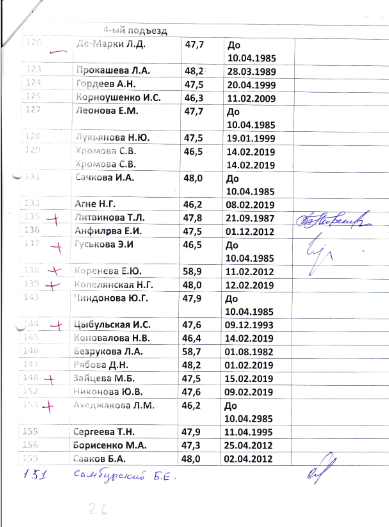 4-ый подъезд
120 Де-Марки Л.Д. 47,7 До
10.04.1985
123 Прокашева Л.А. 48,2 28.03.1989
124 Гордеев А.Н. 47,5 20.04.1999
125 Корноушенко И.С. 46,3 11.02.2009
127 Леонова Е.М. 47,7 До
10.04.1985
128 Лукьянова Н.Ю. 47,5 19.01.1999
129 Хромова С.В. 46,5 14.02.2019
Хромова С.В. 14.02.2019
131 Сачкова И.А. 48,0 До
10.04.1985
133 Агне Н.Г. 46,2 08.02.2019
135 Литвинова Т.Л. 47,8 21.09.1987
136 Анфилрва Е.И. 47,5 01.12.2012
137 Гуськова Э.И 46,5 До
10.04.1985
138 Коренева Е.Ю. 58,9 11.02.2012
139 Кополянская Н.Г. 48,0 12.02.2019
143 Чиндонова Ю.Г. 47,9 До
10.04.1985
144 Цыбульская И.С. 47,6 09.12.1993
145 Коновалова Н.В. 46,4 14.02.2019
146 Безрукова Л.А. 58,7 01.08.1982
147 Рябова Д.Н. 48,2 01.02.2019
148 Зайцева М.Б. 47,5 15.02.2019
152 Никонова Ю.В. 47,6 09.02.2019
153 Ахеджакова Л.М. 46,2 До
10.04.2985
155 Сергеева Т.Н. 47,9 11.04.1995
156 Борисенко М.А. 47,3 25.04.2012
159 Сааков Б.А. 48,0 02.04.2012
151 Самбурский Б.Е.
26